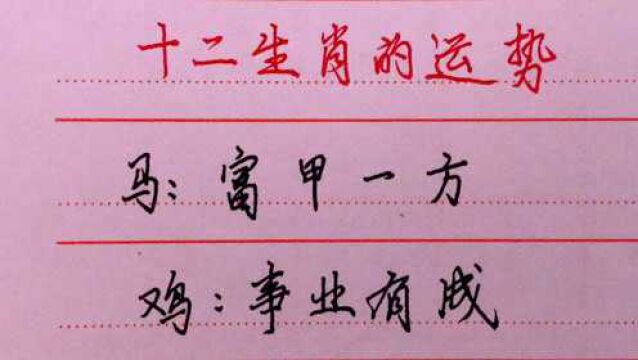 十二生肖的运势
马：富甲一方
鸡：事业有成